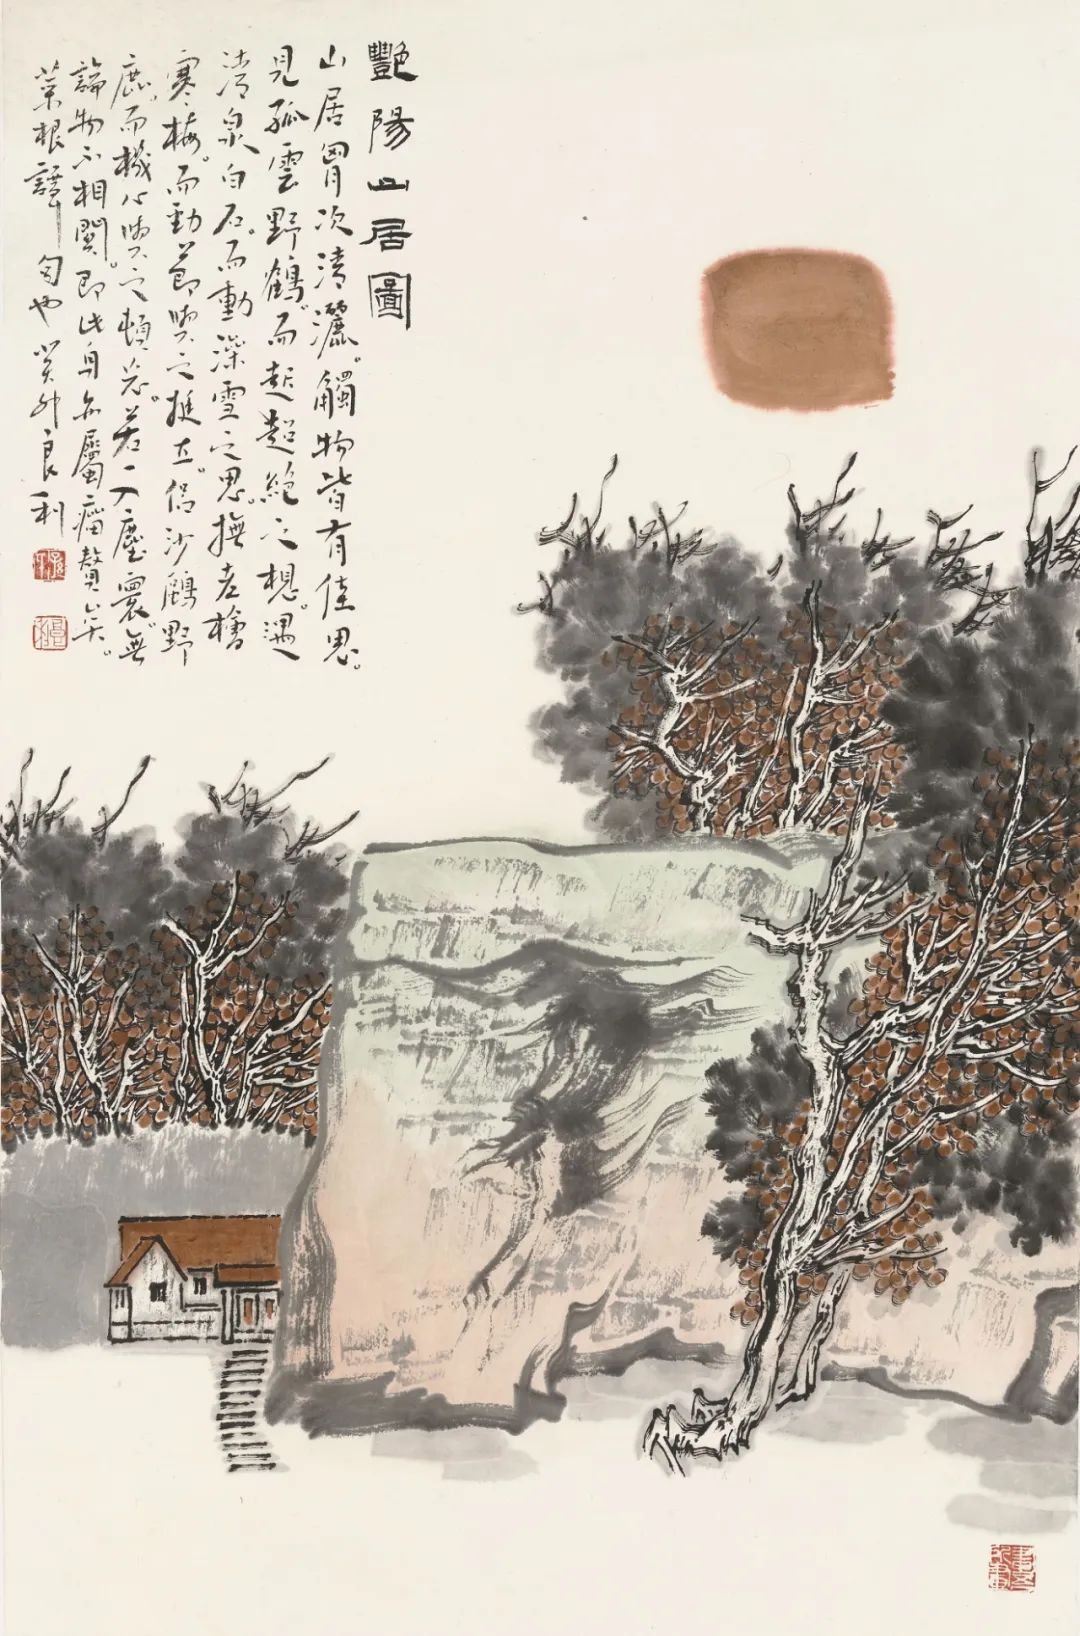 艷陽山居圖
山居胷次清灑。觸物皆有佳思。
見孤雲野鶴。而起超絕之想。遇
清泉白石。而動澡雪之思。撫老檜
寒梅。而勁節與之挺立。侶沙鷗野
麋。而機心與之頓忘。若一入塵寰。無
論物不相關。即此身亦屬瘤贅矣。
菜根譚句也癸卯良利